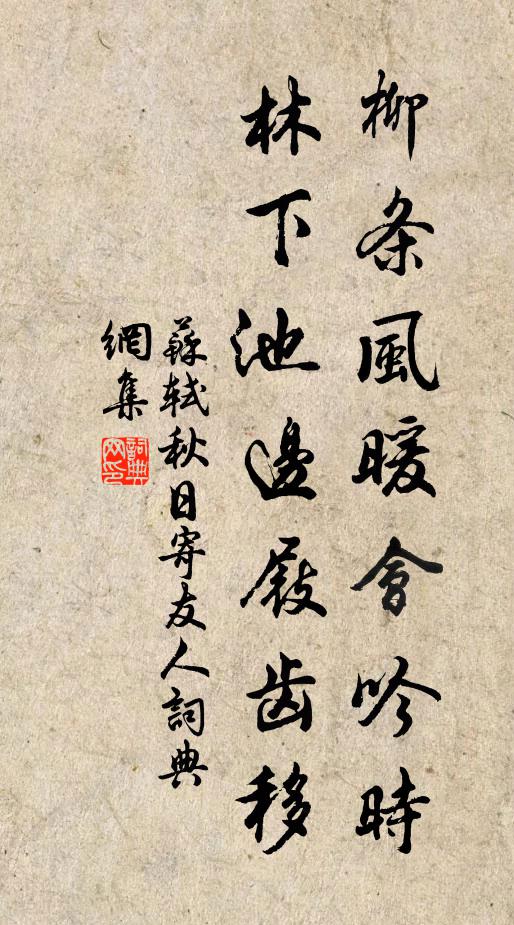 柳条風暖會吟時
林下池邊屐齒移
蘇軾秋日寄友人詞典
網集
詞典网印